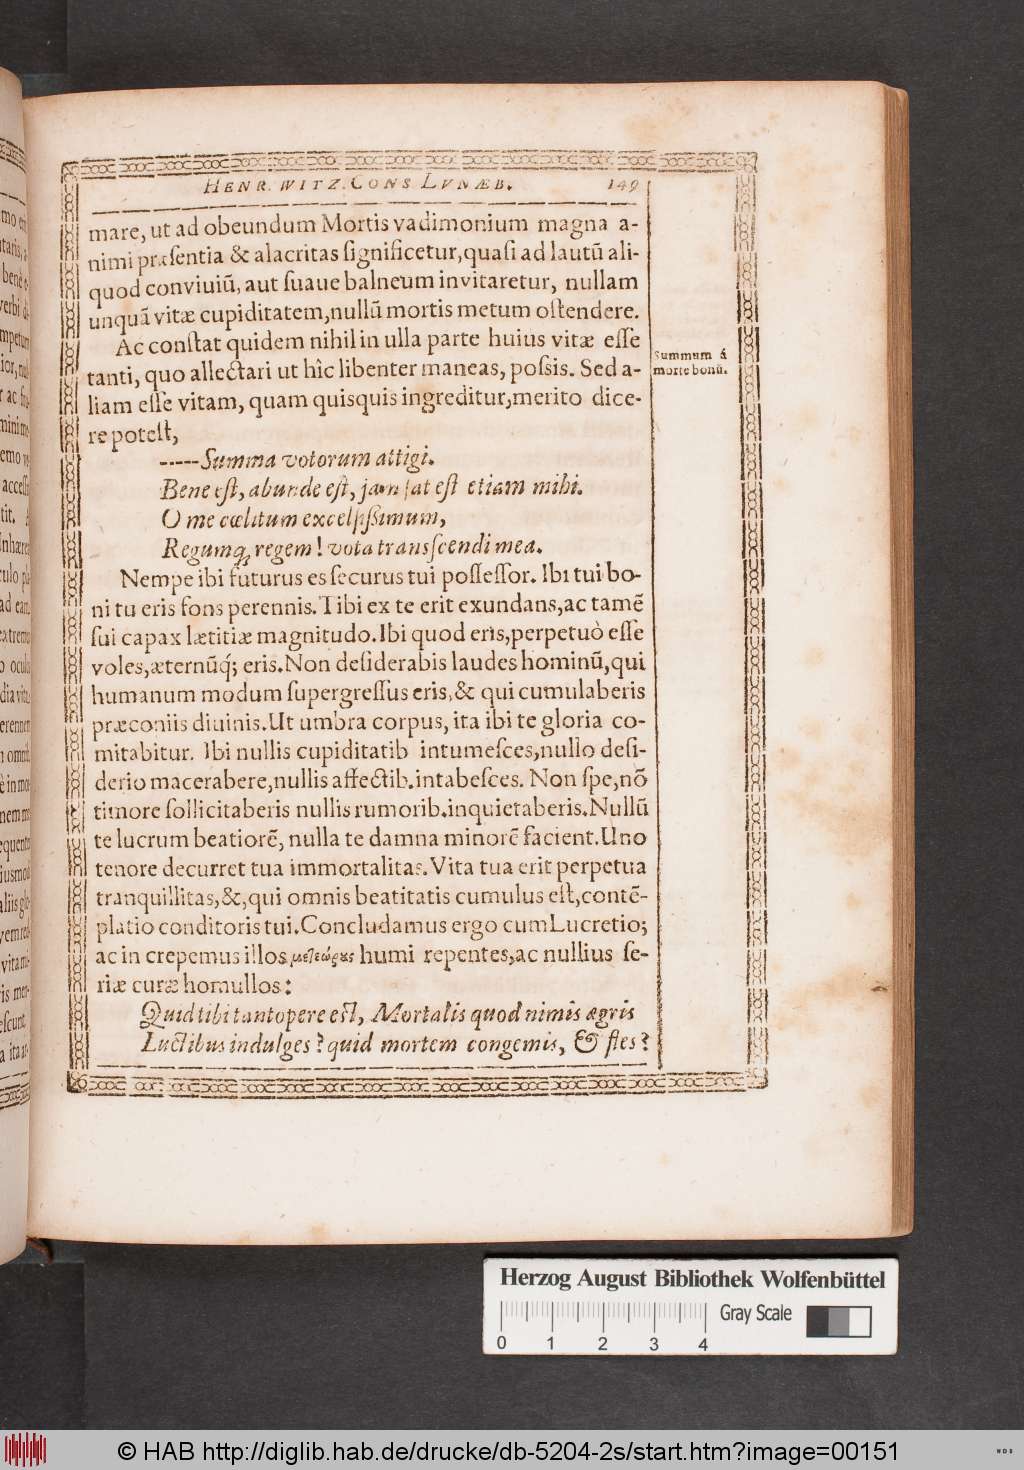 HENR. WITZ. CONS LVNÆB. 149
mare, ut ad obeundum Mortis vadimonium magna a-
nimi præsentia & alacritas significetur, quasi ad lautũ ali-
quod conviviũ, aut suaue balneum invitaretur, nullam
unquã vitæ cupiditatem, nullũ mortis metum ostendere.
Ac constat quidem nihil in ulla parte huius vitæ esse
tanti, quo allectari ut hîc libenter maneas, possis. Sed a-
liam esse vitam, quam quisquis ingreditur, merito dice-
re potest,
Summum â
morte bonũ.
-----Summa votorum attigi.
Bene est, abunde est, jam sat est etiam mihi.
O me cœlitum excelsissimum,
Regumq́; regem! vota transscendi mea.
Nempe ibi futurus es securus tui possessor. Ibi tui bo-
ni tu eris fons perennis. Tibi ex te erit exundans, ac tamẽ
sui capax lætitiæ magnitudo. Ibi quod eris, perpetuò esse
voles, æternũq́; eris. Non desiderabis laudes hominũ, qui
humanum modum supergressus eris, & qui cumulaberis
præconiis diuinis. Ut umbra corpus, ita ibi te gloria co-
mitabitur. Ibi nullis cupiditatib intumesces, nullo desi-
derio macerabere, nullis affectib. intabesces. Non spe, nõ
timore sollicitaberis nullis rumorib. inquietaberis. Nullũ
te lucrum beatiorẽ, nulla te damna minorẽ facient. Uno
tenore decurret tua immortalitas. Vita tua erit perpetua
tranquillitas, &, qui omnis beatitatis cumulus est, contẽ-
platio conditoris tui. Concludamus ergo cum Lucretio;
ac in crepemus illos μετεώρους humi repentes, ac nullius se-
riæ curæ homullos:
Quid tibi tantopere est, Mortalis quod nimis ægris
Luctibus indulges? quid mortem congemis, & fles?
Herzog August Bibliothek Wolfenbüttel
Gray Scale
0 1 2 3 4
© HAB http://diglib.hab.de/drucke/db-5204-2s/start.htm?image=00151